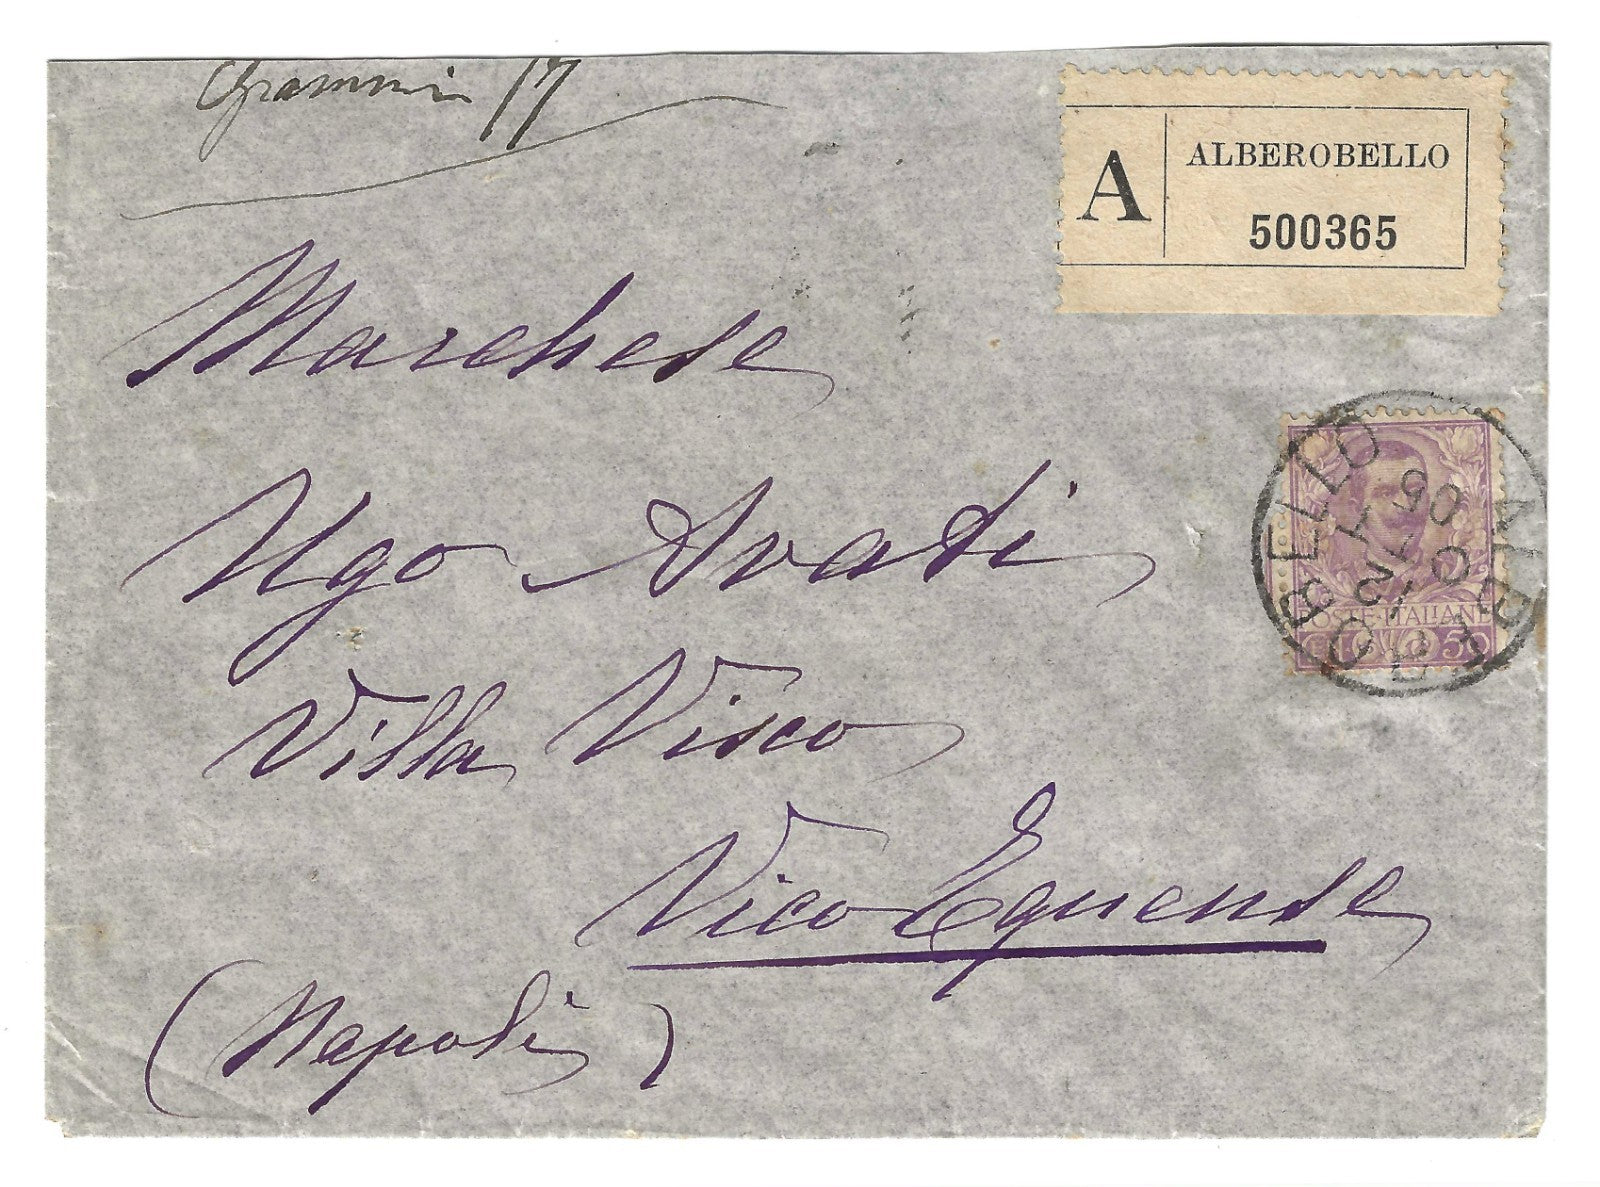 Grammi 17
A ALBEROBELLO
500365
Marchese
Ugo Avati
Villa Visco
Vico Equense
(Napoli)
ALBEROBELLO
05
POSTE ITALIANE
50